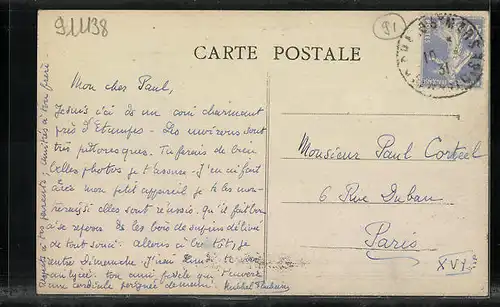 911138
91
CARTE POSTALE
Mon cher Paul,
Je suis ici ds un coin charmant
près d'Etampes - Les environs sont
très pittoresques. Tu ferais de bien
belles photos je t'assure - J'en ai fait
avec mon petit appareil je te les mon-
trerai si elles sont réussis. Qu'il fait bon
se reposer ds les bois de sapins délivré
de tout souci. Allons à bientôt, je
rentre Dimanche. J'irai Lundi te voir
au lycée. Ton ami fidèle qui t'envoie
une cordiale poignée de main.
Respects à tes parents, amitiés à ton frère.
Monsieur Paul Corteel
6 Rue Duban
Paris
XVI e